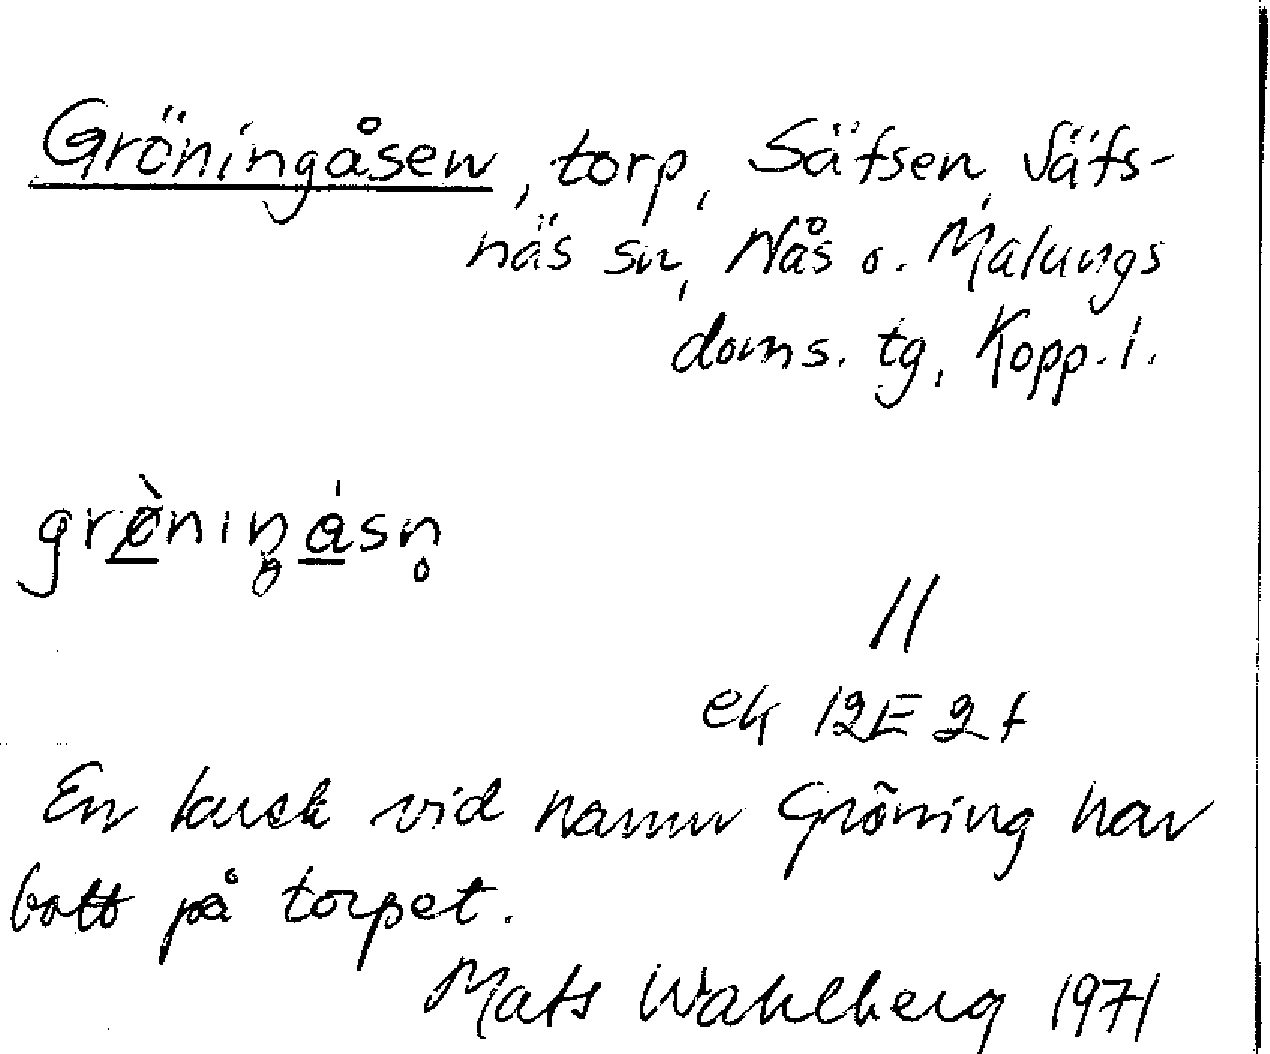 Gröningåsen, torp, Säfsen, Säfs-
näs sn, Nås o. Malungs
doms. tg, Kopp. l.
grø̀nıŋåsn̥
//
ek 12E 2f
En karek vid namn Gröning har
bott på torpet.
Mats Wahlberg 1971